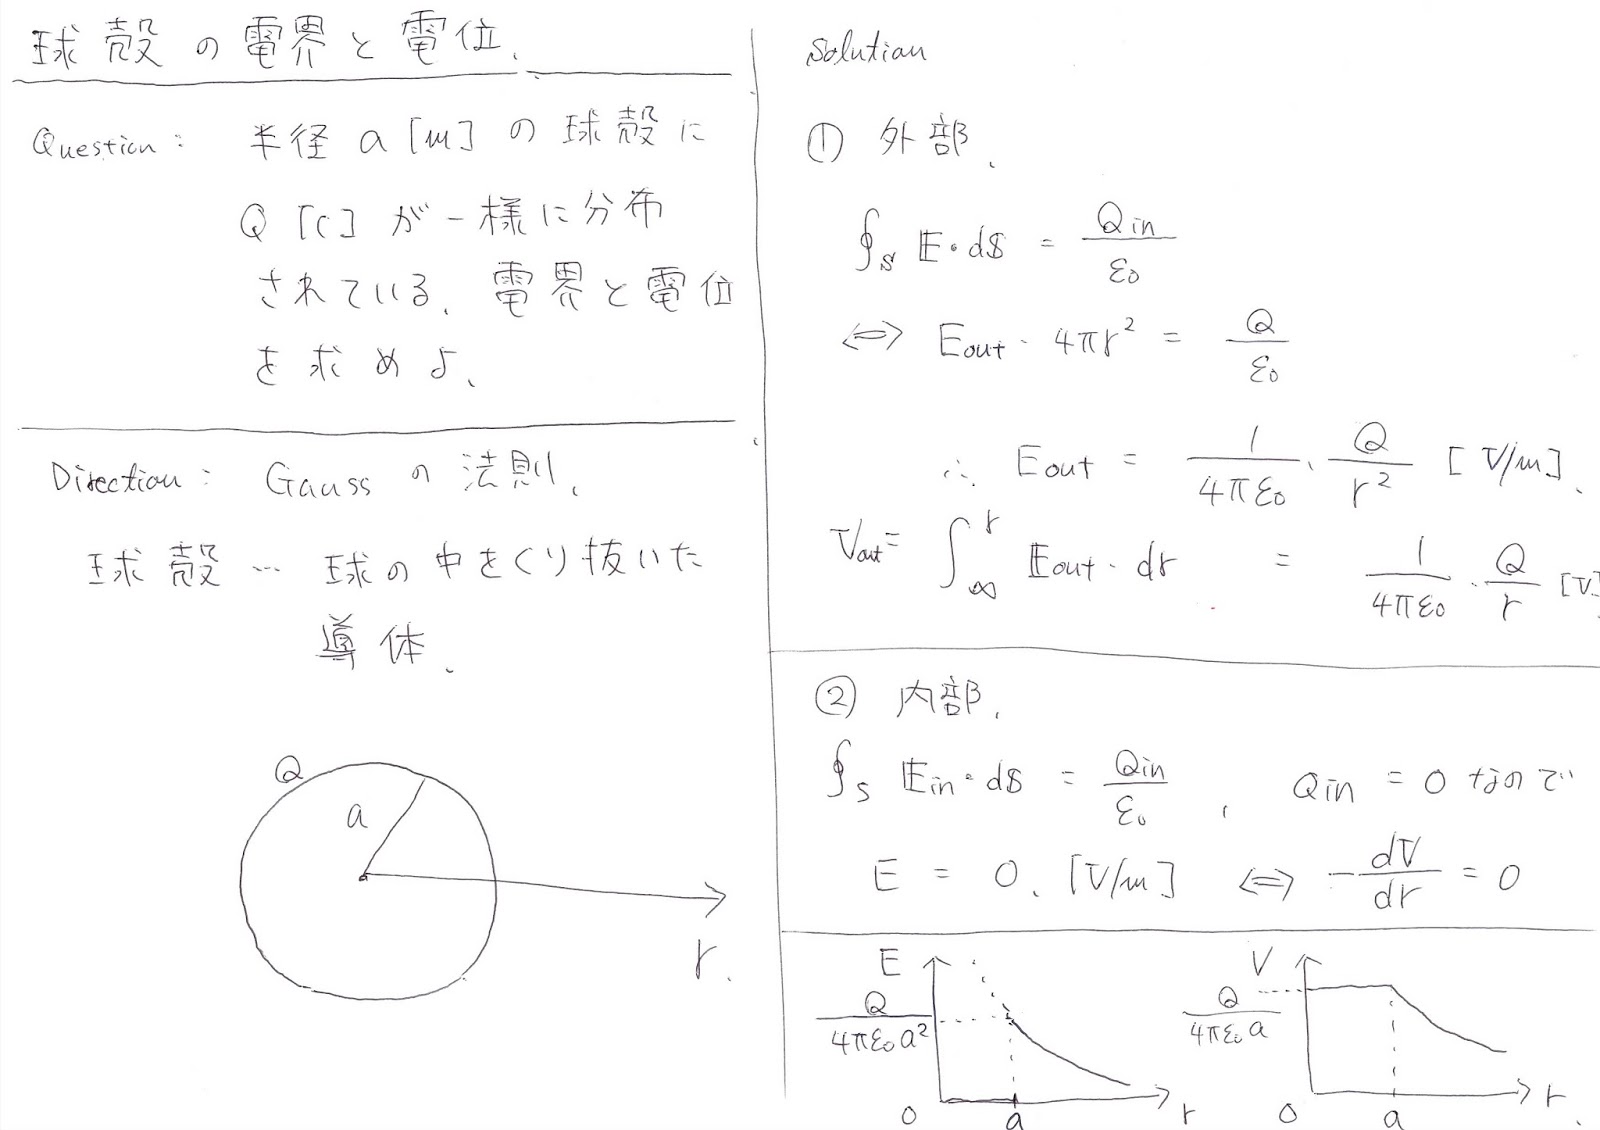 球殻の電界と電位.
Question: 半径 a [m] の球殻に
Q [C] が一様に分布
されている. 電界と電位
を求めよ.
Direction: Gaussの法則.
球殻 … 球の中をくり抜いた
導体.
Q
a
r.
Solution
① 外部.
∮_S 𝔼・d𝕊 = Qin/ε₀
⇔ Eout・4πr² = Q/ε₀
∴ Eout = 1/4πε₀・Q/r² [V/m].
Vout = ∫_∞^r 𝔼out・dr = 1/4πε₀・Q/r [V]
② 内部.
∮_S 𝔼in・d𝕊 = Qin/ε₀, Qin = 0 なので
E = 0. [V/m] ⇔ -dV/dr = 0
E
Q/4πε₀a²
0 a r
V
Q/4πε₀a
0 a r.